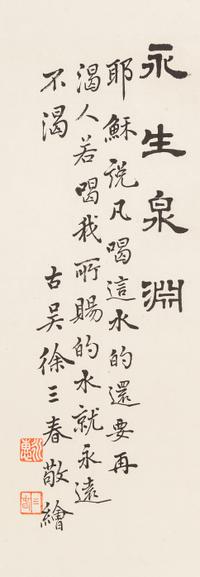 永生泉淵
耶穌说凡喝這水的還要再
渴人若喝我所賜的水就永遠
不渴
古吴徐三春敬繪